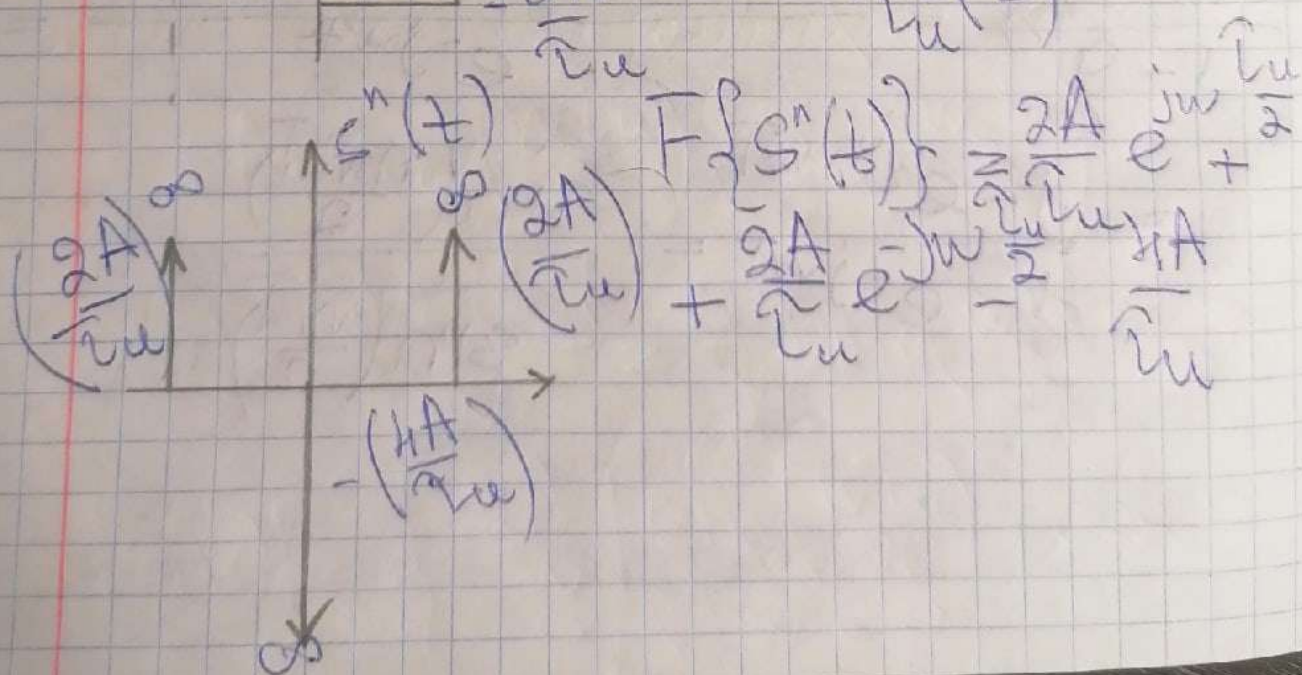 τu
τu
S"(t)
F{S"(t)} = 2A/τu e^{jω τu/2} +
+ 2A/τu e^{-jω τu/2} - 4A/τu
∞
∞
(2A/τu)
(2A/τu)
-(4A/τu)
∞